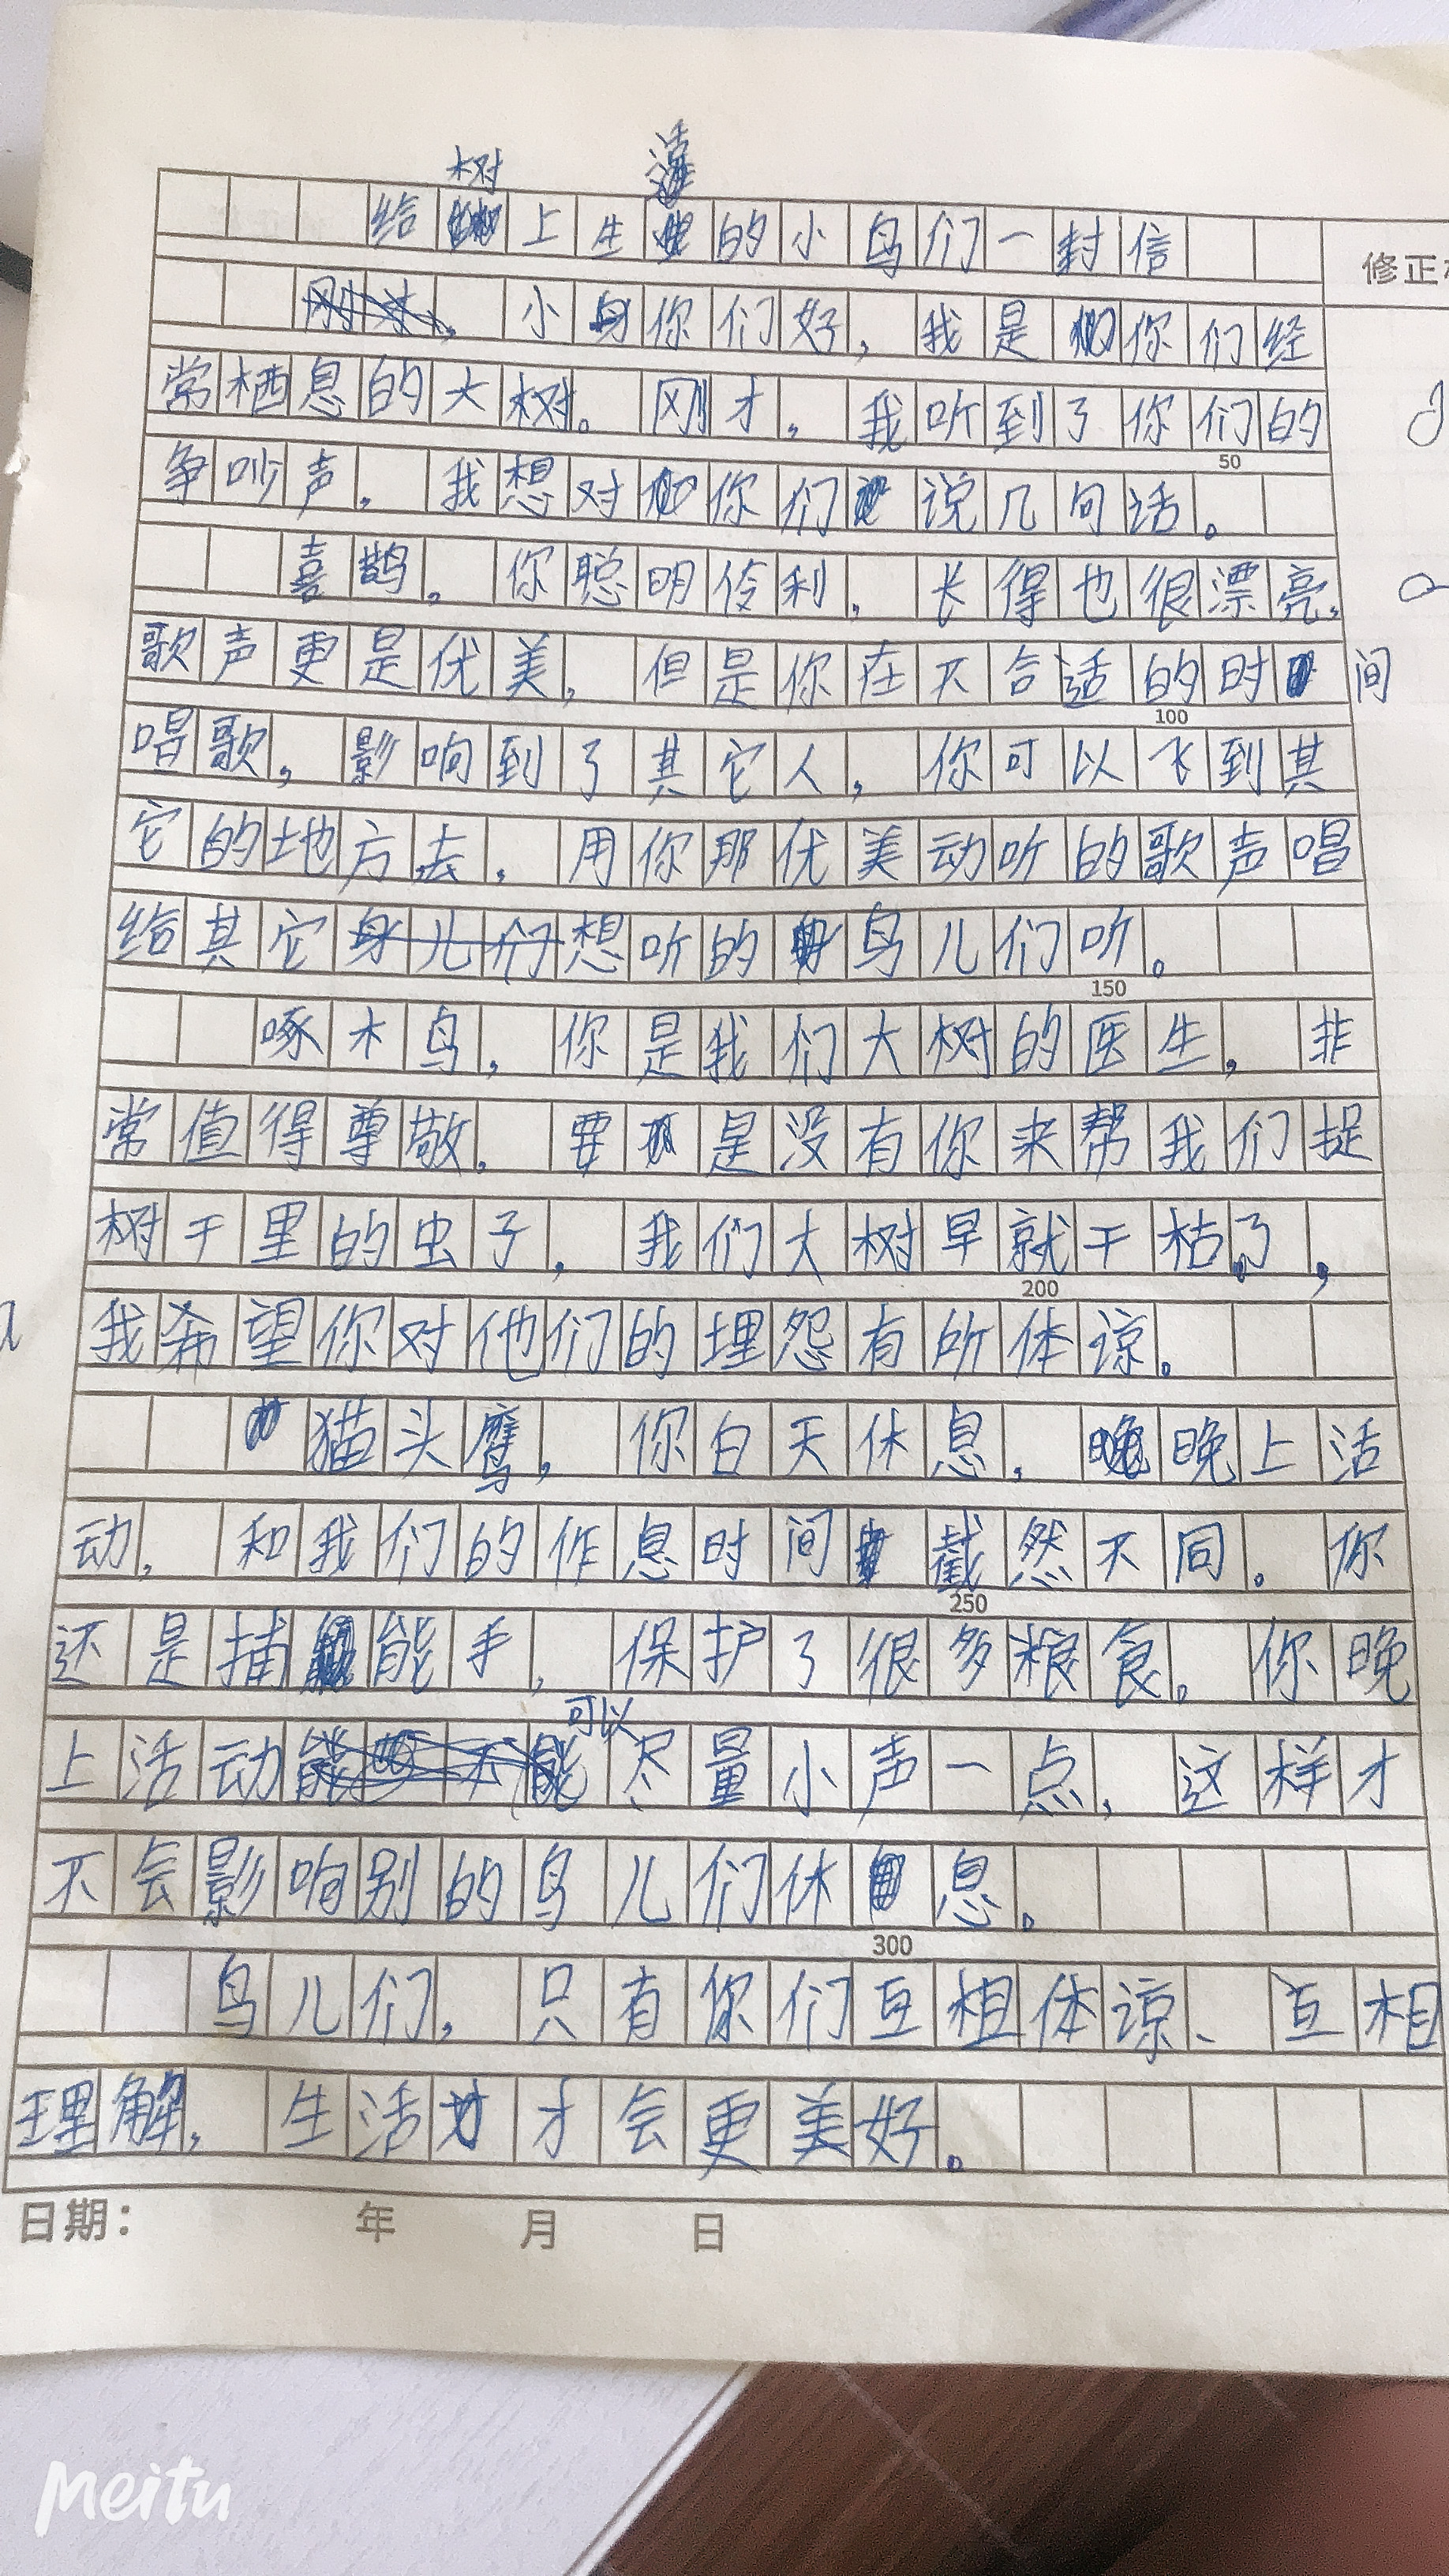 给树上生活的小鸟们一封信
修正
小鸟你们好，我是你们经
常栖息的大树。刚才，我听到了你们的
50
争吵声，我想对你们说几句话。
喜鹊，你聪明伶利，长得也很漂亮，
歌声更是优美，但是你在不合适的时间
100
唱歌，影响到了其它人，你可以飞到其
它的地方去，用你那优美动听的歌声唱
给其它想听的鸟儿们听。
150
啄木鸟，你是我们大树的医生，非
常值得尊敬，要不是没有你来帮我们捉
树干里的虫子，我们大树早就干枯了，
200
我希望你对他们的埋怨有所体谅。
猫头鹰，你白天休息，晚上活
动，和我们的作息时间截然不同。你
250
还是捕能手，保护了很多粮食。你晚
上活动可以尽量小声一点，这样才
不会影响别的鸟儿们休息。
300
鸟儿们，只有你们互相体谅、互相
理解，生活才会更美好。
日期： 年 月 日
Meitu